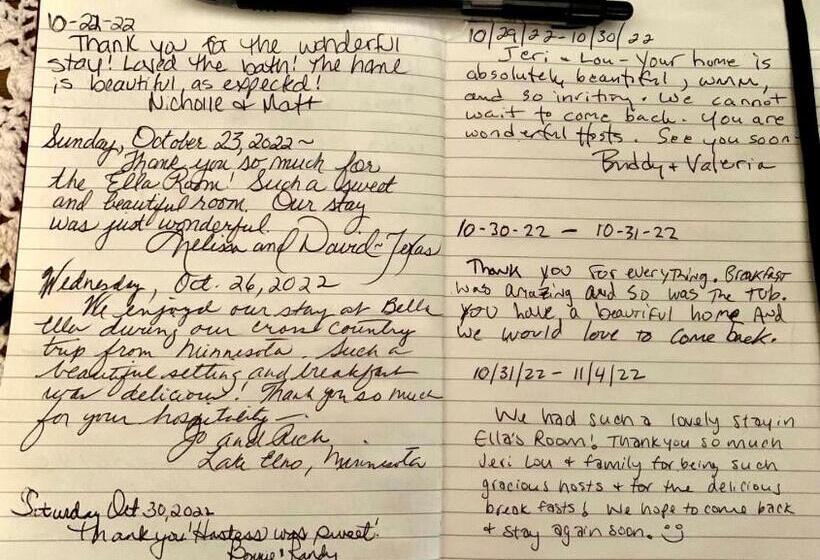 10-22-22
Thank you for the wonderful
stay! Loved the bath! The home
is beautiful, as expected!
Nicholle & Matt
Sunday, October 23, 2022~
Thank you so much for
the Ella Room! Such a sweet
and beautiful room. Our stay
was just wonderful.
Melisa and David ~ Texas
Wednesday, Oct. 26, 2022
We enjoyed our stay at Bella
Ella during our cross country
trip from Minnesota. Such a
beautiful setting and breakfast
was delicious! Thank you so much
for your hospitality —
Jo and Rich
Lake Elmo, Minnesota
Saturday Oct 30, 2022
Thank you! Hostess was sweet!
& Randy
10/29/22-10/30/22
Jeri + Lou - Your home is
absolutely beautiful, warm,
and so inviting. We cannot
wait to come back. You are
wonderful Hosts. See you soon-
Buddy + Valeria
10-30-22 - 10-31-22
Thank you for everything. Breakfast
was amazing and so was the tub.
You have a beautiful home And
We would love to come back.
10/31/22 - 11/4/22
We had such a lovely stay in
Ella's Room! Thank you so much
Jeri Lou + family for being such
gracious hosts + for the delicious
breakfasts! We hope to come back
+ stay again soon. ☺